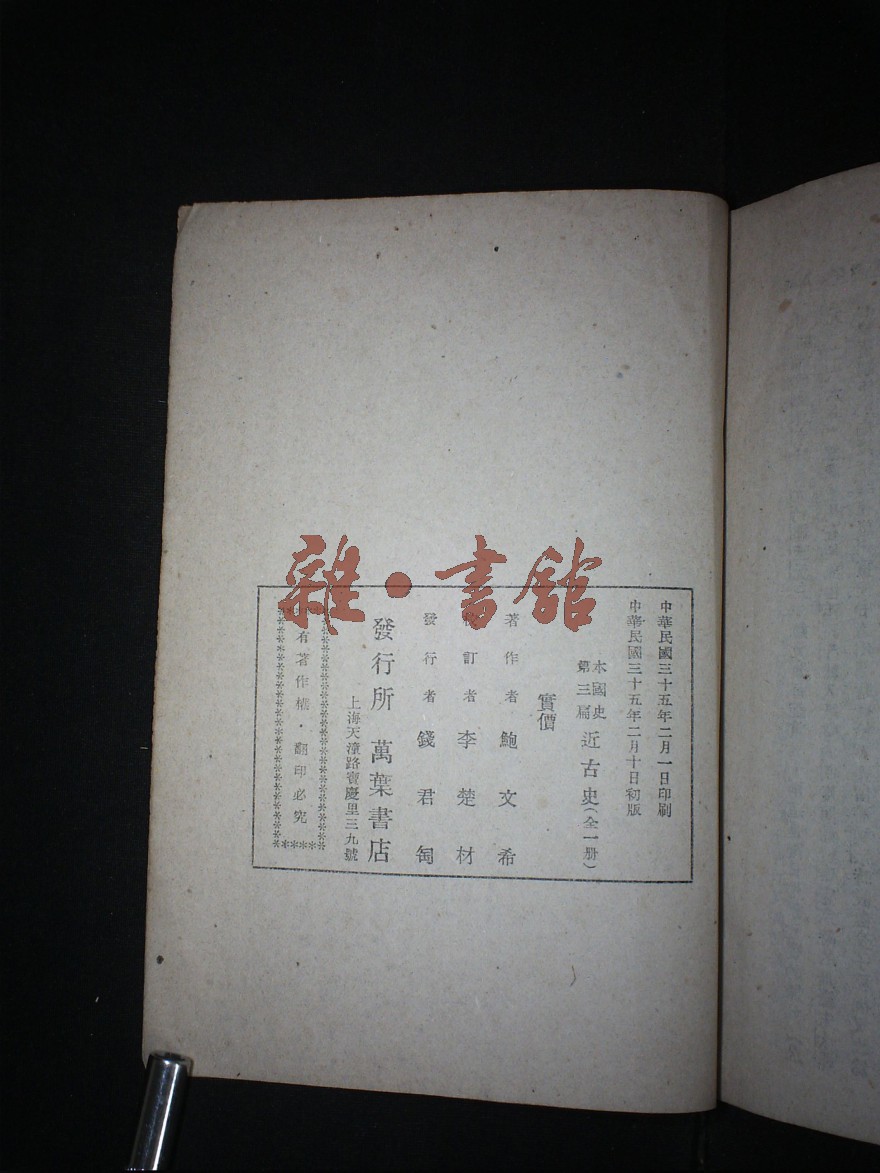 中華民國三十五年二月一日印刷
中華民國三十五年二月十日初版
本國史
第三篇
近古史(全一册)
實價
著作者 鮑文希
校訂者 李楚材
發行者 錢君匋
發行所 萬葉書店
上海天潼路寶慶里三九號
有著作權·翻印必究
雜·書館